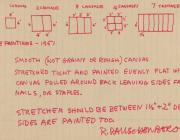 2 CANVASES
7 CANVASES
PAINTINGS - 1951
SMOOTH (NOT GRAINY OR ROUGH) CANVAS
STRETCHED TIGHT AND PAINTED EVENLY FLAT WH
CANVAS PULLED AROUND BACK LEAVING SIDES FR
NAILS, OR STAPLES.
STRETCHER SHOULD BE BETWEEN 1½" + 2" DE
SIDES ARE PAINTED TOO.
R. RAUSCHENBERG